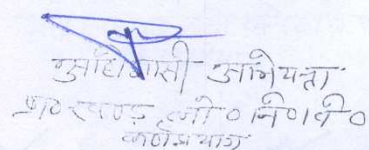 अधिशासी अभियन्ता
प्रा० खण्ड लो० नि० वि०
कर्णप्रयाग